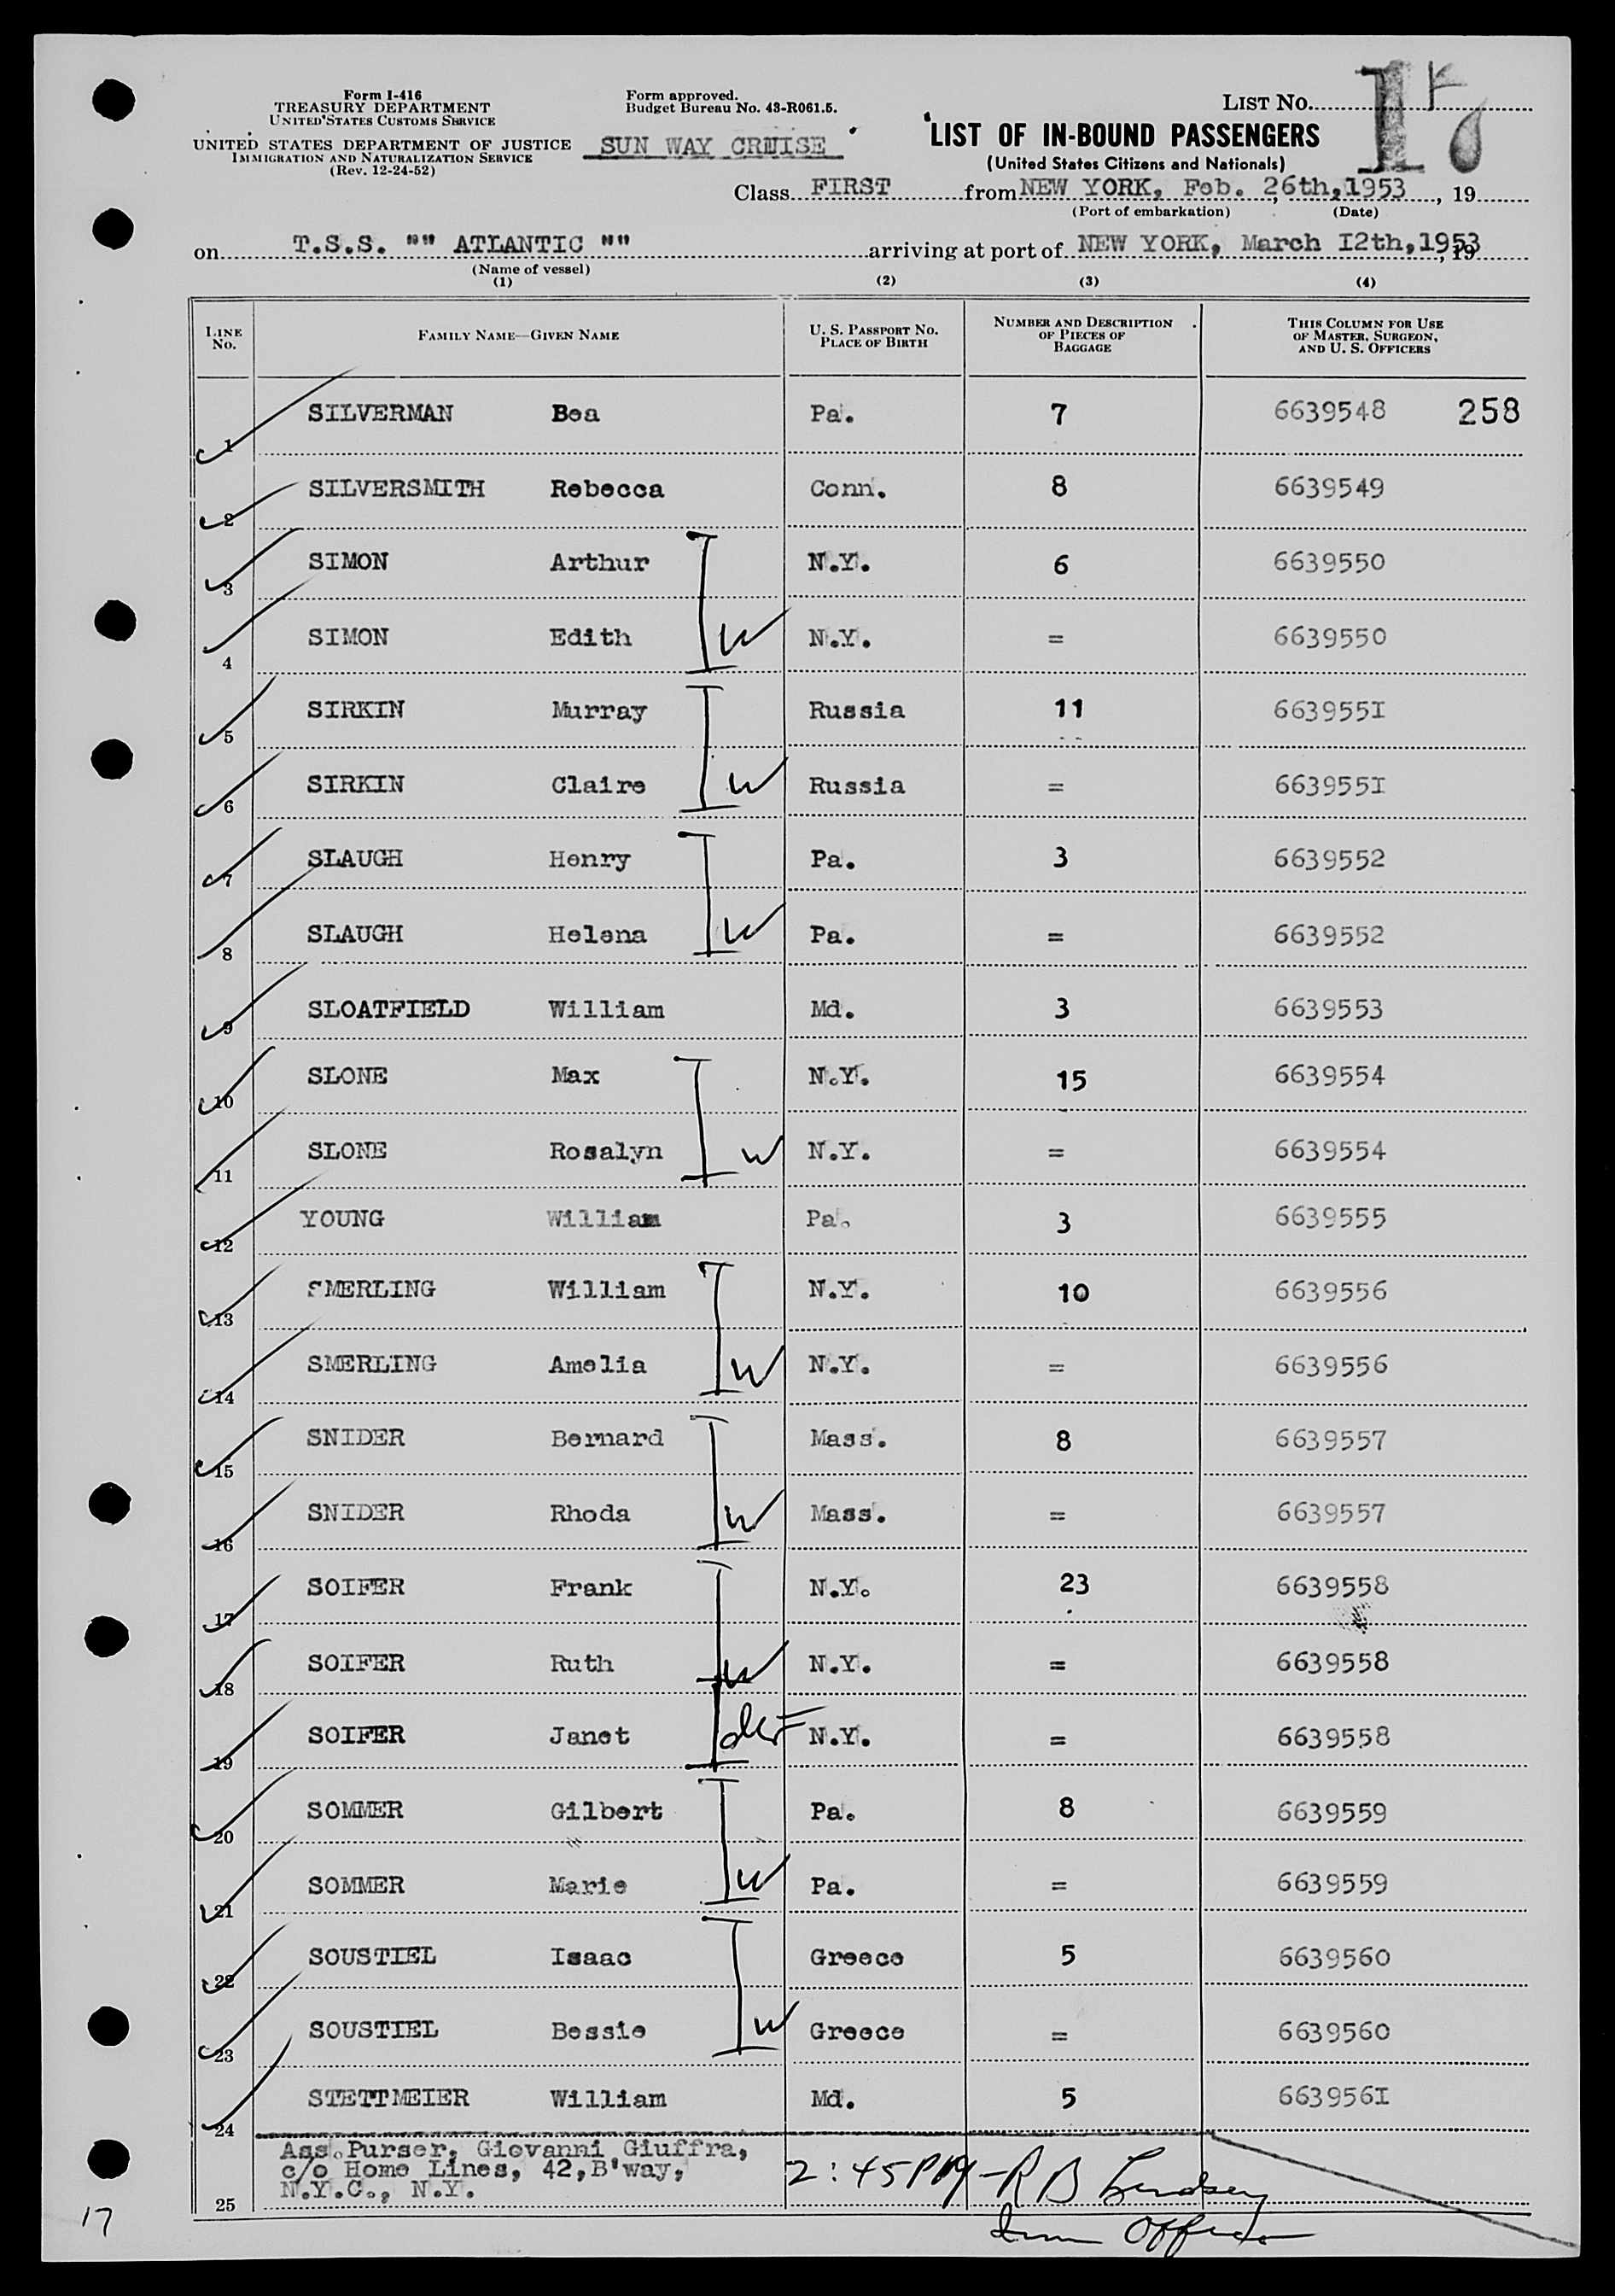 Form I-416
TREASURY DEPARTMENT
UNITED STATES CUSTOMS SERVICE
UNITED STATES DEPARTMENT OF JUSTICE
IMMIGRATION AND NATURALIZATION SERVICE
(Rev. 12-24-52)
Form approved.
Budget Bureau No. 43-R061.5.
SUN WAY CRUISE
LIST NO.
LIST OF IN-BOUND PASSENGERS
(United States Citizens and Nationals)
Class FIRST from NEW YORK, Feb. 26th,1953, 19
(Port of embarkation) (Date)
on T.S.S. "" ATLANTIC "" arriving at port of NEW YORK, March I2th,1953, 19
(Name of vessel)
(1) (2) (3) (4)
LINE NO. FAMILY NAME—GIVEN NAME U. S. PASSPORT NO. PLACE OF BIRTH NUMBER AND DESCRIPTION OF PIECES OF BAGGAGE THIS COLUMN FOR USE OF MASTER, SURGEON, AND U. S. OFFICERS
1 SILVERMAN Bea Pa. 7 6639548 258
2 SILVERSMITH Rebecca Conn. 8 6639549
3 SIMON Arthur N.Y. 6 6639550
4 SIMON Edith W N.Y. = 6639550
5 SIRKIN Murray Russia 11 663955I
6 SIRKIN Claire W Russia = 663955I
7 SLAUGH Henry Pa. 3 6639552
8 SLAUGH Helena W Pa. = 6639552
9 SLOATFIELD William Md. 3 6639553
10 SLONE Max N.Y. 15 6639554
11 SLONE Rosalyn W N.Y. = 6639554
12 YOUNG William Pa. 3 6639555
13 SMERLING William N.Y. 10 6639556
14 SMERLING Amelia W N.Y. = 6639556
15 SNIDER Bernard Mass. 8 6639557
16 SNIDER Rhoda W Mass. = 6639557
17 SOIFER Frank N.Y. 23 6639558
18 SOIFER Ruth W N.Y. = 6639558
19 SOIFER Janet N.Y. = 6639558
20 SOMMER Gilbert Pa. 8 6639559
21 SOMMER Marie W Pa. = 6639559
22 SOUSTIEL Isaac Greece 5 6639560
23 SOUSTIEL Bessie W Greece = 6639560
24 STETTMEIER William Md. 5 663956I
Ass.Purser, Giovanni Giuffra,
c/o Home Lines, 42,B'way,
N.Y.C., N.Y.
25
2:45PM - R B Lindsey
Imm Officer
17